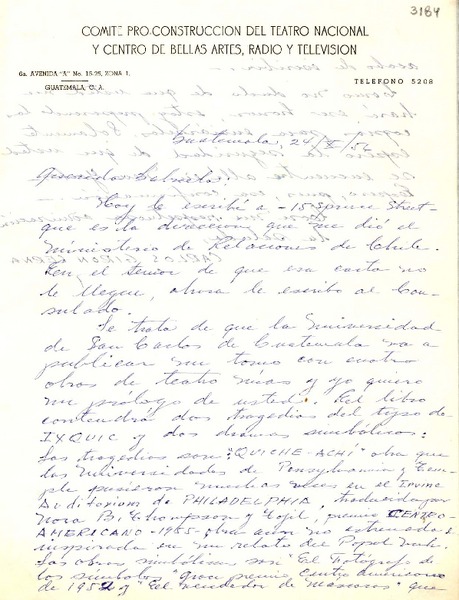 3184
COMITE PRO-CONSTRUCCION DEL TEATRO NACIONAL
Y CENTRO DE BELLAS ARTES, RADIO Y TELEVISION
6a. AVENIDA "A" No. 18-25, ZONA 1,
GUATEMALA, C. A.
TELEFONO 5208
Guatemala, 24/X/56
Gabriela:
Hoy le escribí a -15 Spruce Street-
que es la dirección que me dió el
Ministerio de Relaciones de Chile.
En el temor de que esa carta no
le llegue, ahora le escribo al Con-
sulado.
Se trata de que la Universidad
de San Carlos de Guatemala va a
publicar un tomo con cuatro
obras de teatro mías y yo quiero
un prólogo de usted. El libro
contendrá dos tragedias del tipo de
IXQUIC y dos dramas simbólicos:
Las tragedias son: "QUICHE-ACHI" obra que
las Universidades de Pensylvania y Tem-
ple pusieron muchas veces en el Irvine
Auditorium de PHILADELPHIA, traducida por
Nora B. Thompson y Tojil, premio CENTRO-
AMERICANO-1955- obra aún no estrenada e
inspirada en un relato del Popol Vuh.
Las obras simbólicas son "El Fotógrafo de
los símbolos" gran premio Centroamericano
de 1952 y "El vendedor de máscaras" que